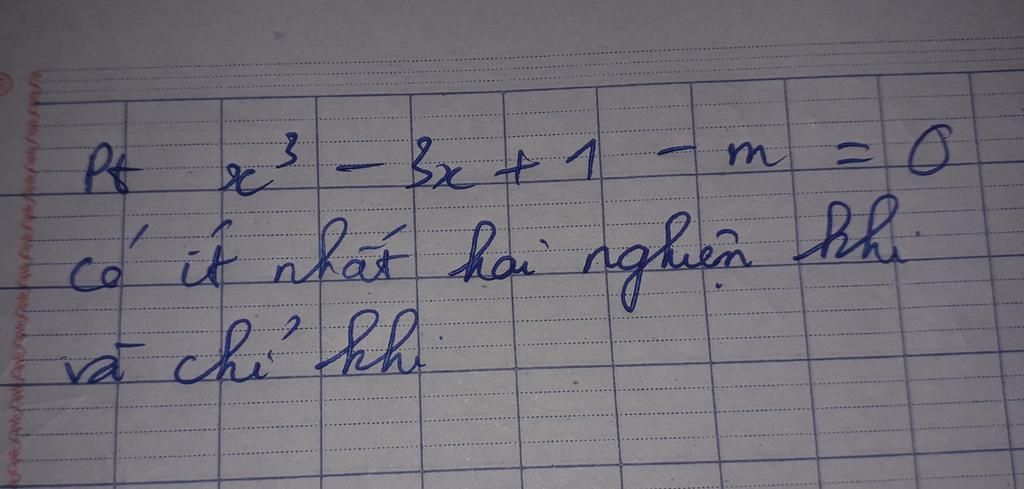 Pt x³ - 3x + 1 - m = 0
có ít nhất hai nghiện khi
và chỉ khi